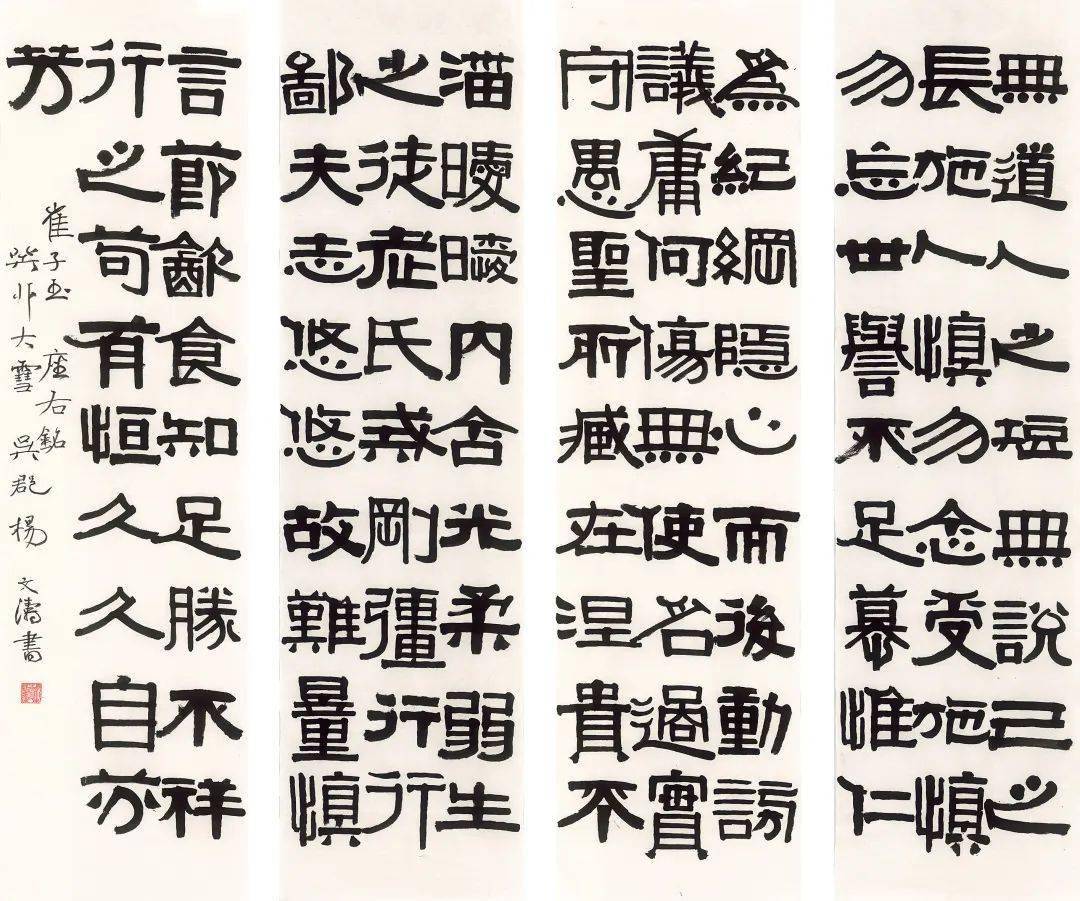 無道人之短無說己之
長施人慎勿念受施慎
勿忘世譽不足慕惟仁
爲紀綱隱心而後動謗
議庸何傷無使名過實
守愚聖所臧在涅貴不
淄曖曖內含光柔弱生
之徒老氏戒剛彊行行
鄙夫志悠悠故難量慎
言節飲食知足勝不祥
行之苟有恒久久自芬
芳
崔子玉座右銘
癸卯大雪吳郡楊文濤書